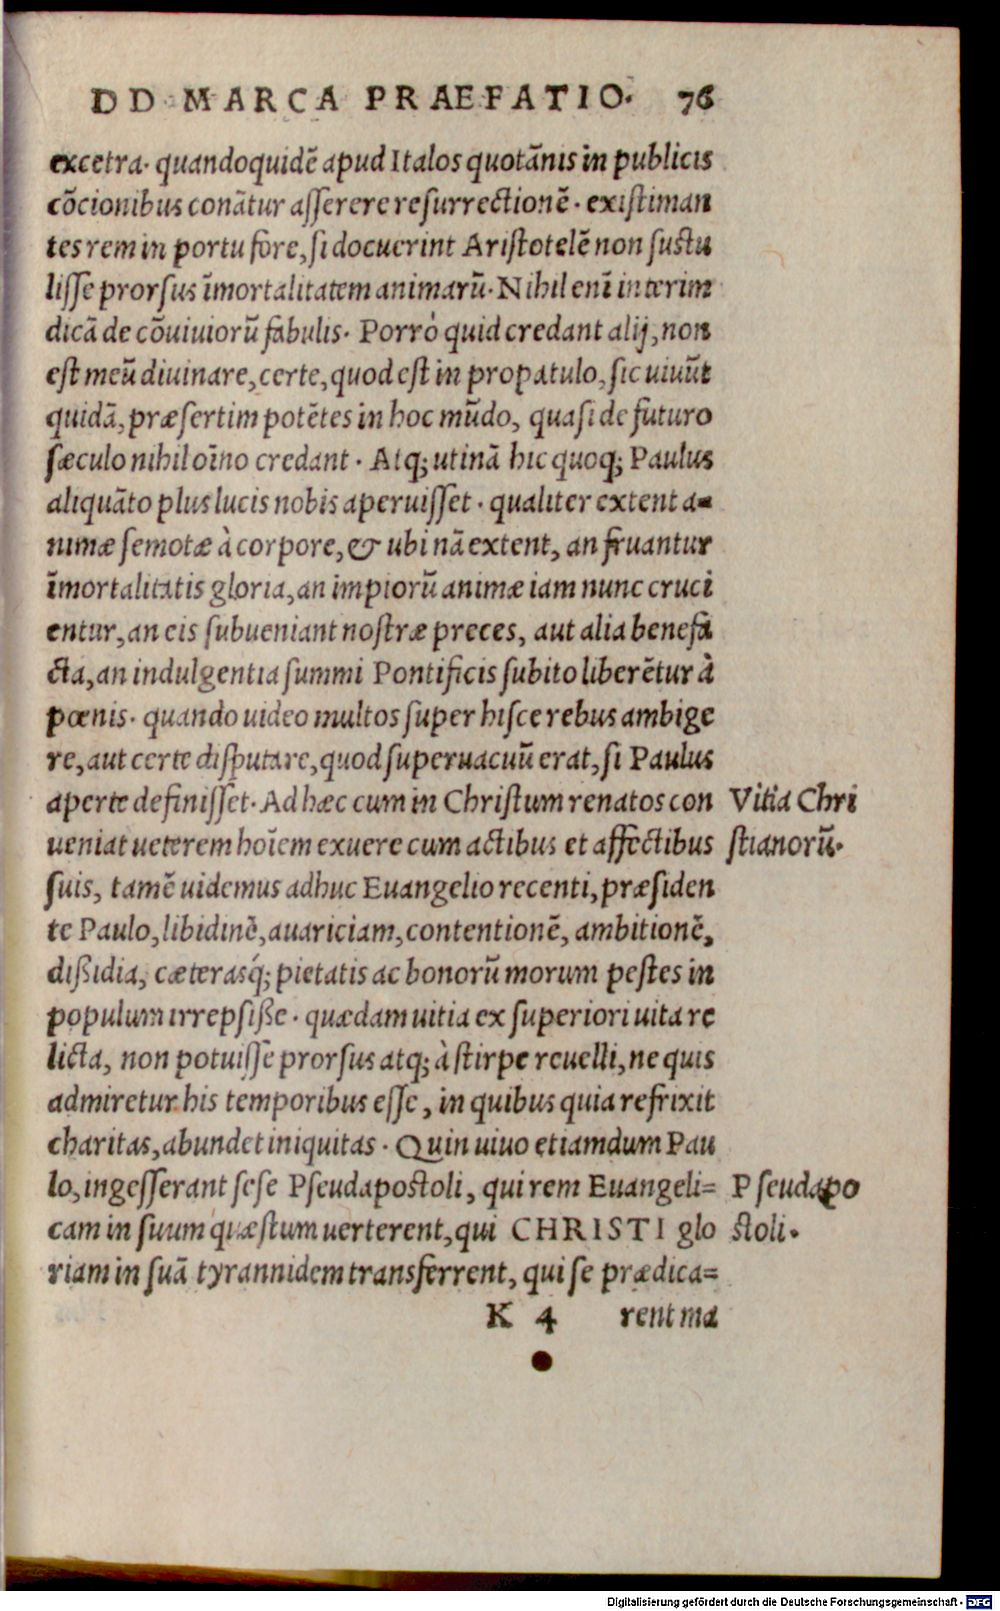 DD MARCA PRAEFATIO. 76
excetra. quandoquidē apud Italos quotānis in publicis
cōcionibus conātur asserere resurrectionē. existiman
tes rem in portu fore, si docuerint Aristotelē non sustu
lisse prorsus īmortalitatem animarū. Nihil enī interim
dicā de cōuiuiorū fabulis. Porrò quid credant alij, non
est meū diuinare, certe, quod est in propatulo, sic uiuūt
quidā, præsertim potētes in hoc mūdo, quasi de futuro
sæculo nihil oīno credant. Atq; utinā hic quoq; Paulus
aliquāto plus lucis nobis aperuisset. qualiter extent a=
nimæ semotæ à corpore, & ubi nā extent, an fruantur
īmortalitatis gloria, an impiorū animæ iam nunc cruci
entur, an eis subueniant nostræ preces, aut alia benefa
cta, an indulgentia summi Pontificis subito liberētur à
pœnis. quando uideo multos super hisce rebus ambige
re, aut certe disputare, quod superuacuū erat, si Paulus
aperte definisset. Ad hæc cum in Christum renatos con
ueniat ueterem hoīem exuere cum actibus et affectibus
suis, tamē uidemus adhuc Euangelio recenti, præsiden
te Paulo, libidinē, auariciam, contentionē, ambitionē,
dißidia, cæterasq́; pietatis ac bonorū morum pestes in
populum irrepsiße. quædam uitia ex superiori uita re
licta, non potuisse prorsus atq; à stirpe reuelli, ne quis
admiretur his temporibus esse, in quibus quia refrixit
charitas, abundet iniquitas. Quin uiuo etiamdum Pau
lo, ingesserant sese Pseudapostoli, qui rem Euangeli=
cam in suum quæstum uerterent, qui CHRISTI glo
riam in suā tyrannidem transferrent, qui se prædica=
K 4 rent ma
Vitia Chri
stianorū.
Pseudapo
stoli.
Digitalisierung gefördert durch die Deutsche Forschungsgemeinschaft - DFG